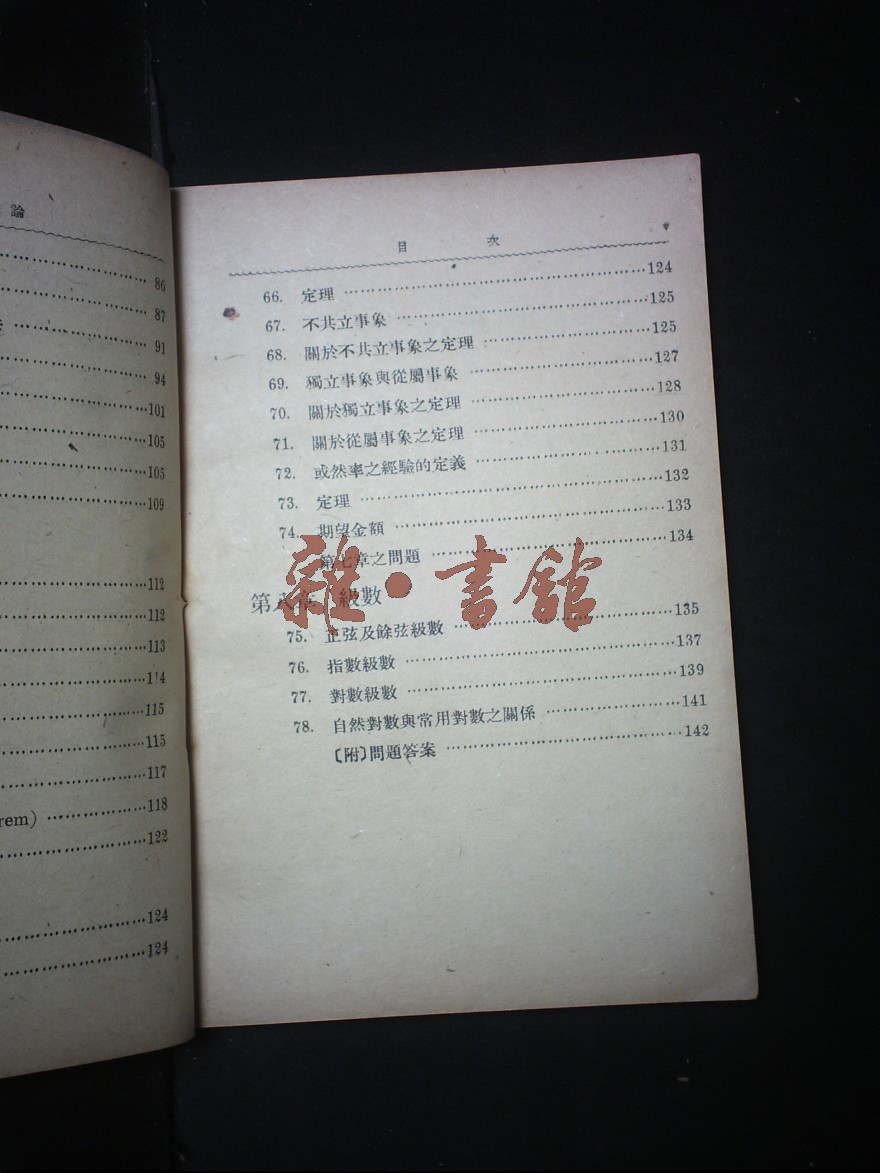 論
86
87
91
94
101
105
105
109
112
112
113
114
115
115
117
rem) 118
122
124
124
目 次
66. 定理 124
67. 不共立事象 125
68. 關於不共立事象之定理 125
69. 獨立事象與從屬事象 127
70. 關於獨立事象之定理 128
71. 關於從屬事象之定理 130
72. 或然率之經驗的定義 131
73. 定理 132
74. 期望金額 133
第七章之問題 134
第八章 級數
75. 正弦及餘弦級數 135
76. 指數級數 137
77. 對數級數 139
78. 自然對數與常用對數之關係 141
〔附〕問題答案 142
雜·書館